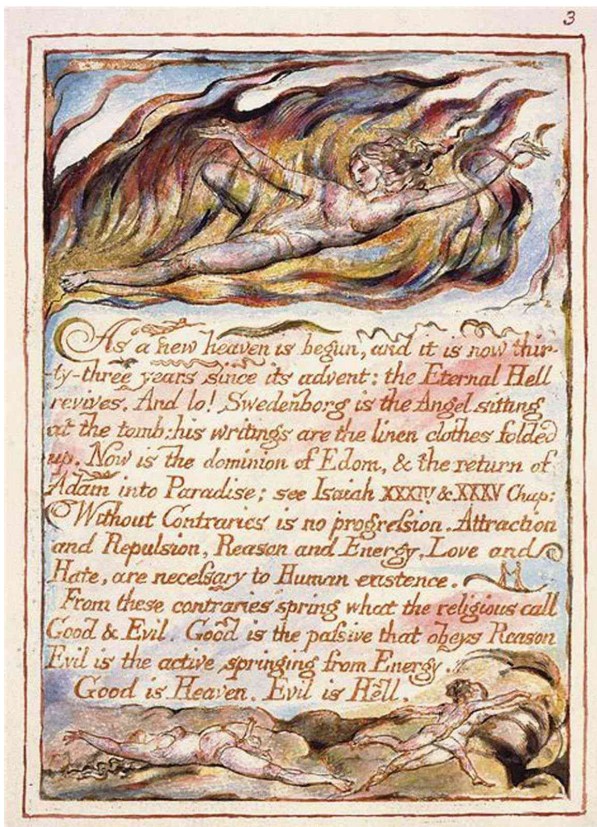 3
As a new heaven is begun, and it is now thir-
-ty-three years since its advent: the Eternal Hell
revives. And lo! Swedenborg is the Angel sitting
at the tomb: his writings are the linen clothes folded
up. Now is the dominion of Edom, & the return of
Adam into Paradise; see Isaiah XXXIV & XXXV Chap:
Without Contraries is no progreſsion. Attraction
and Repulsion, Reason and Energy, Love and
Hate, are neceſsary to Human existence.
From these contraries spring what the religious call
Good & Evil. Good is the paſsive that obeys Reason
Evil is the active springing from Energy.
Good is Heaven. Evil is Hell.